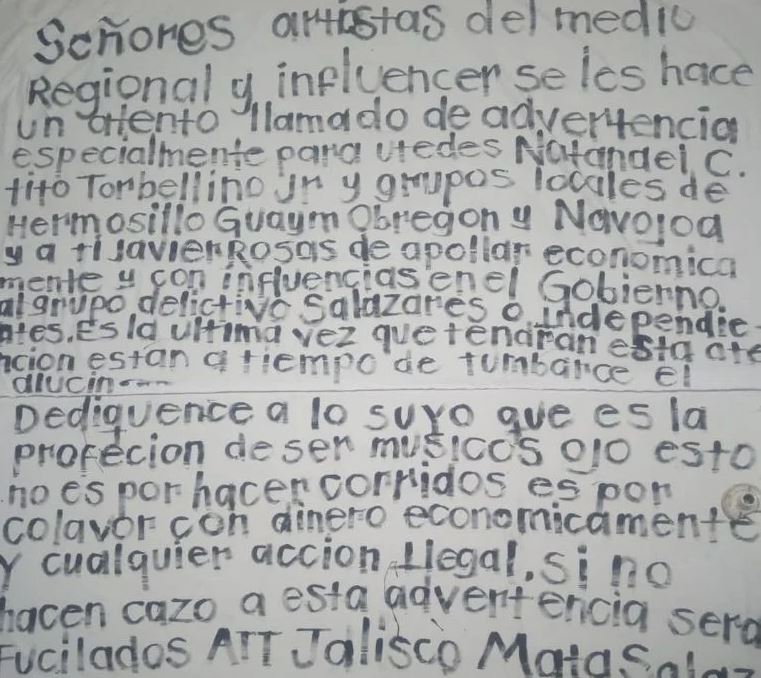 Señores artistas del medio
Regional y influencer se les hace
un atento llamado de advertencia
especialmente para utedes Natanael C.
tito Torbellino Jr y grupos locales de
Hermosillo Guaym Obregon y Navojoa
y a ti Javier Rosas de apollar economica
mente y con influencias en el Gobierno.
al grupo delictivo Salazares o independie
ntes. Es la ultima vez que tendran esta ate
ncion estan a tiempo de tumbarce el
alucin
Dediquence a lo suyo que es la
profecion de ser musicos ojo esto
no es por hacer corridos es por
colavor con dinero economicamente
y cualquier accion Ilegal. si no
hacen cazo a esta advertencia sera
Fucilados ATT Jalisco Mata Salaz